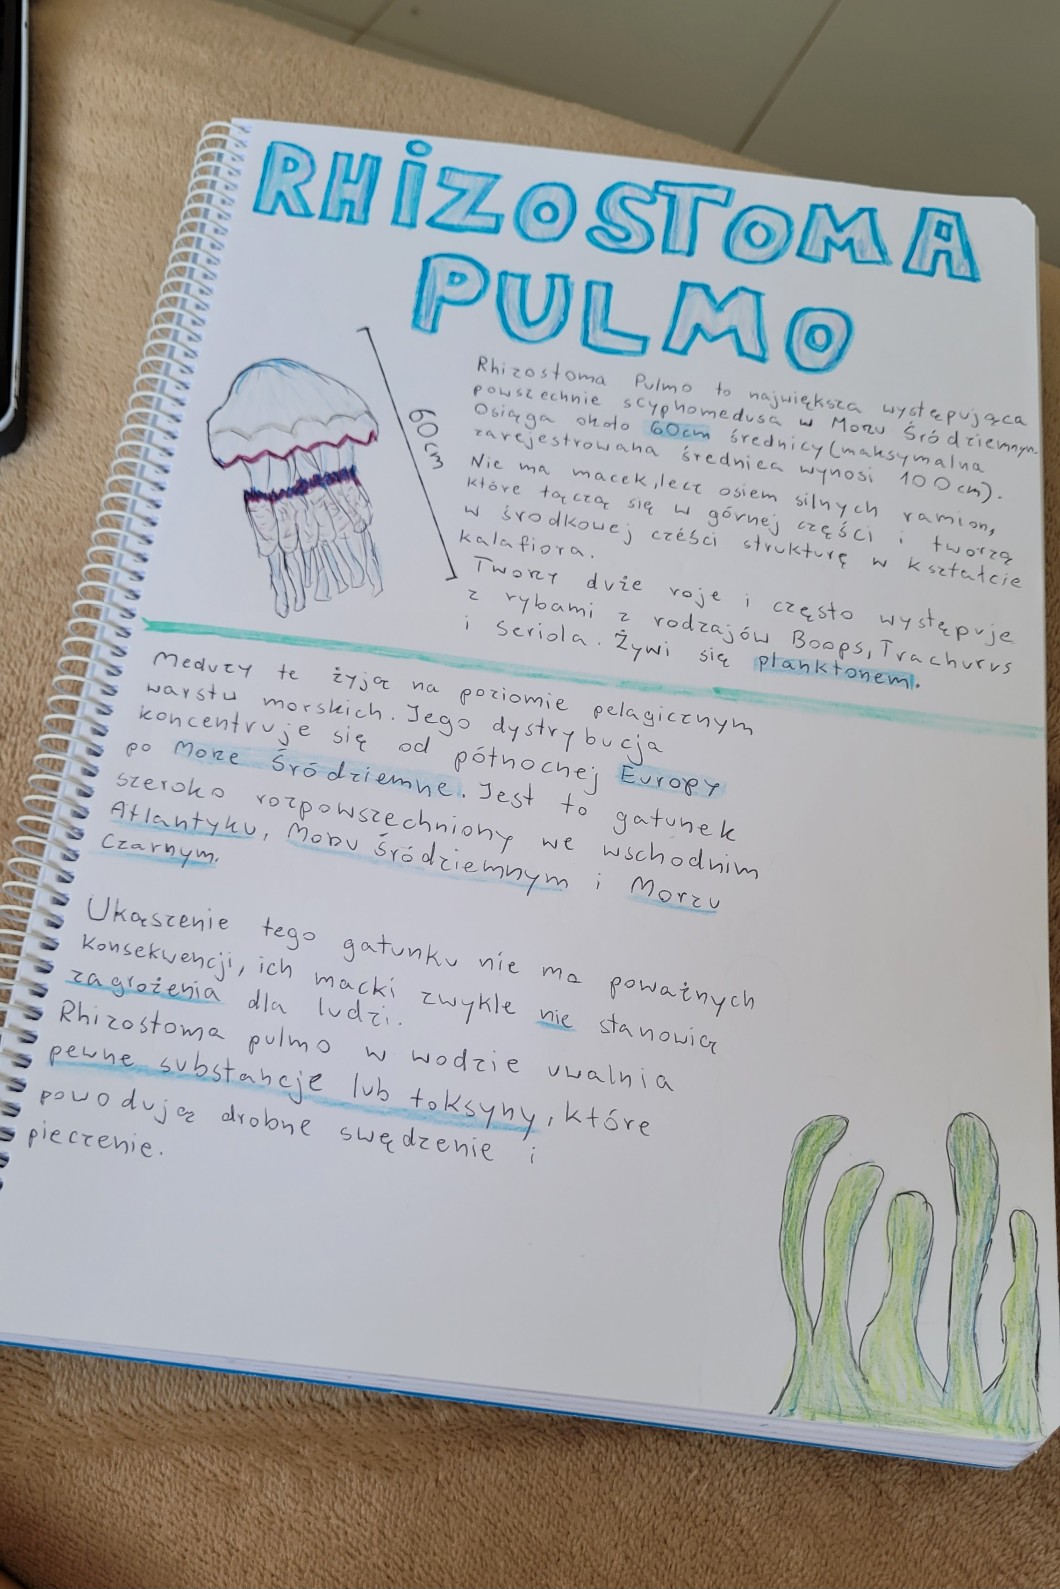 RHIZOSTOMA
PULMO
60cm
Rhizostoma Pulmo to największa występująca
powszechnie scyphomedusa w Morzu Śródziemnym.
Osiąga około 60cm średnicy (maksymalna
zarejestrowana średnica wynosi 100cm).
Nie ma macek, lecz osiem silnych ramion,
które łączą się w górnej części i tworzą
w środkowej cześci strukturę w kształcie
kalafiora.
Tworzy duże roje i często występuje
z rybami z rodzajów Boops, Trachurus
i seriola. Żywi się planktonem.
Meduzy te żyją na poziomie pelagicznym
warstw morskich. Jego dystrybucja
koncentruje się od północnej Europy
po Morze Śródziemne. Jest to gatunek
szeroko rozpowszechniony we wschodnim
Atlantyku, Morzu Śródziemnym i Morzu
Czarnym.
Ukąszenie tego gatunku nie ma poważnych
konsekwencji, ich macki zwykle nie stanowią
zagrożenia dla ludzi.
Rhizostoma pulmo w wodzie uwalnia
pewne substancje lub toksyny, które
powodują drobne swędzenie i
pieczenie.